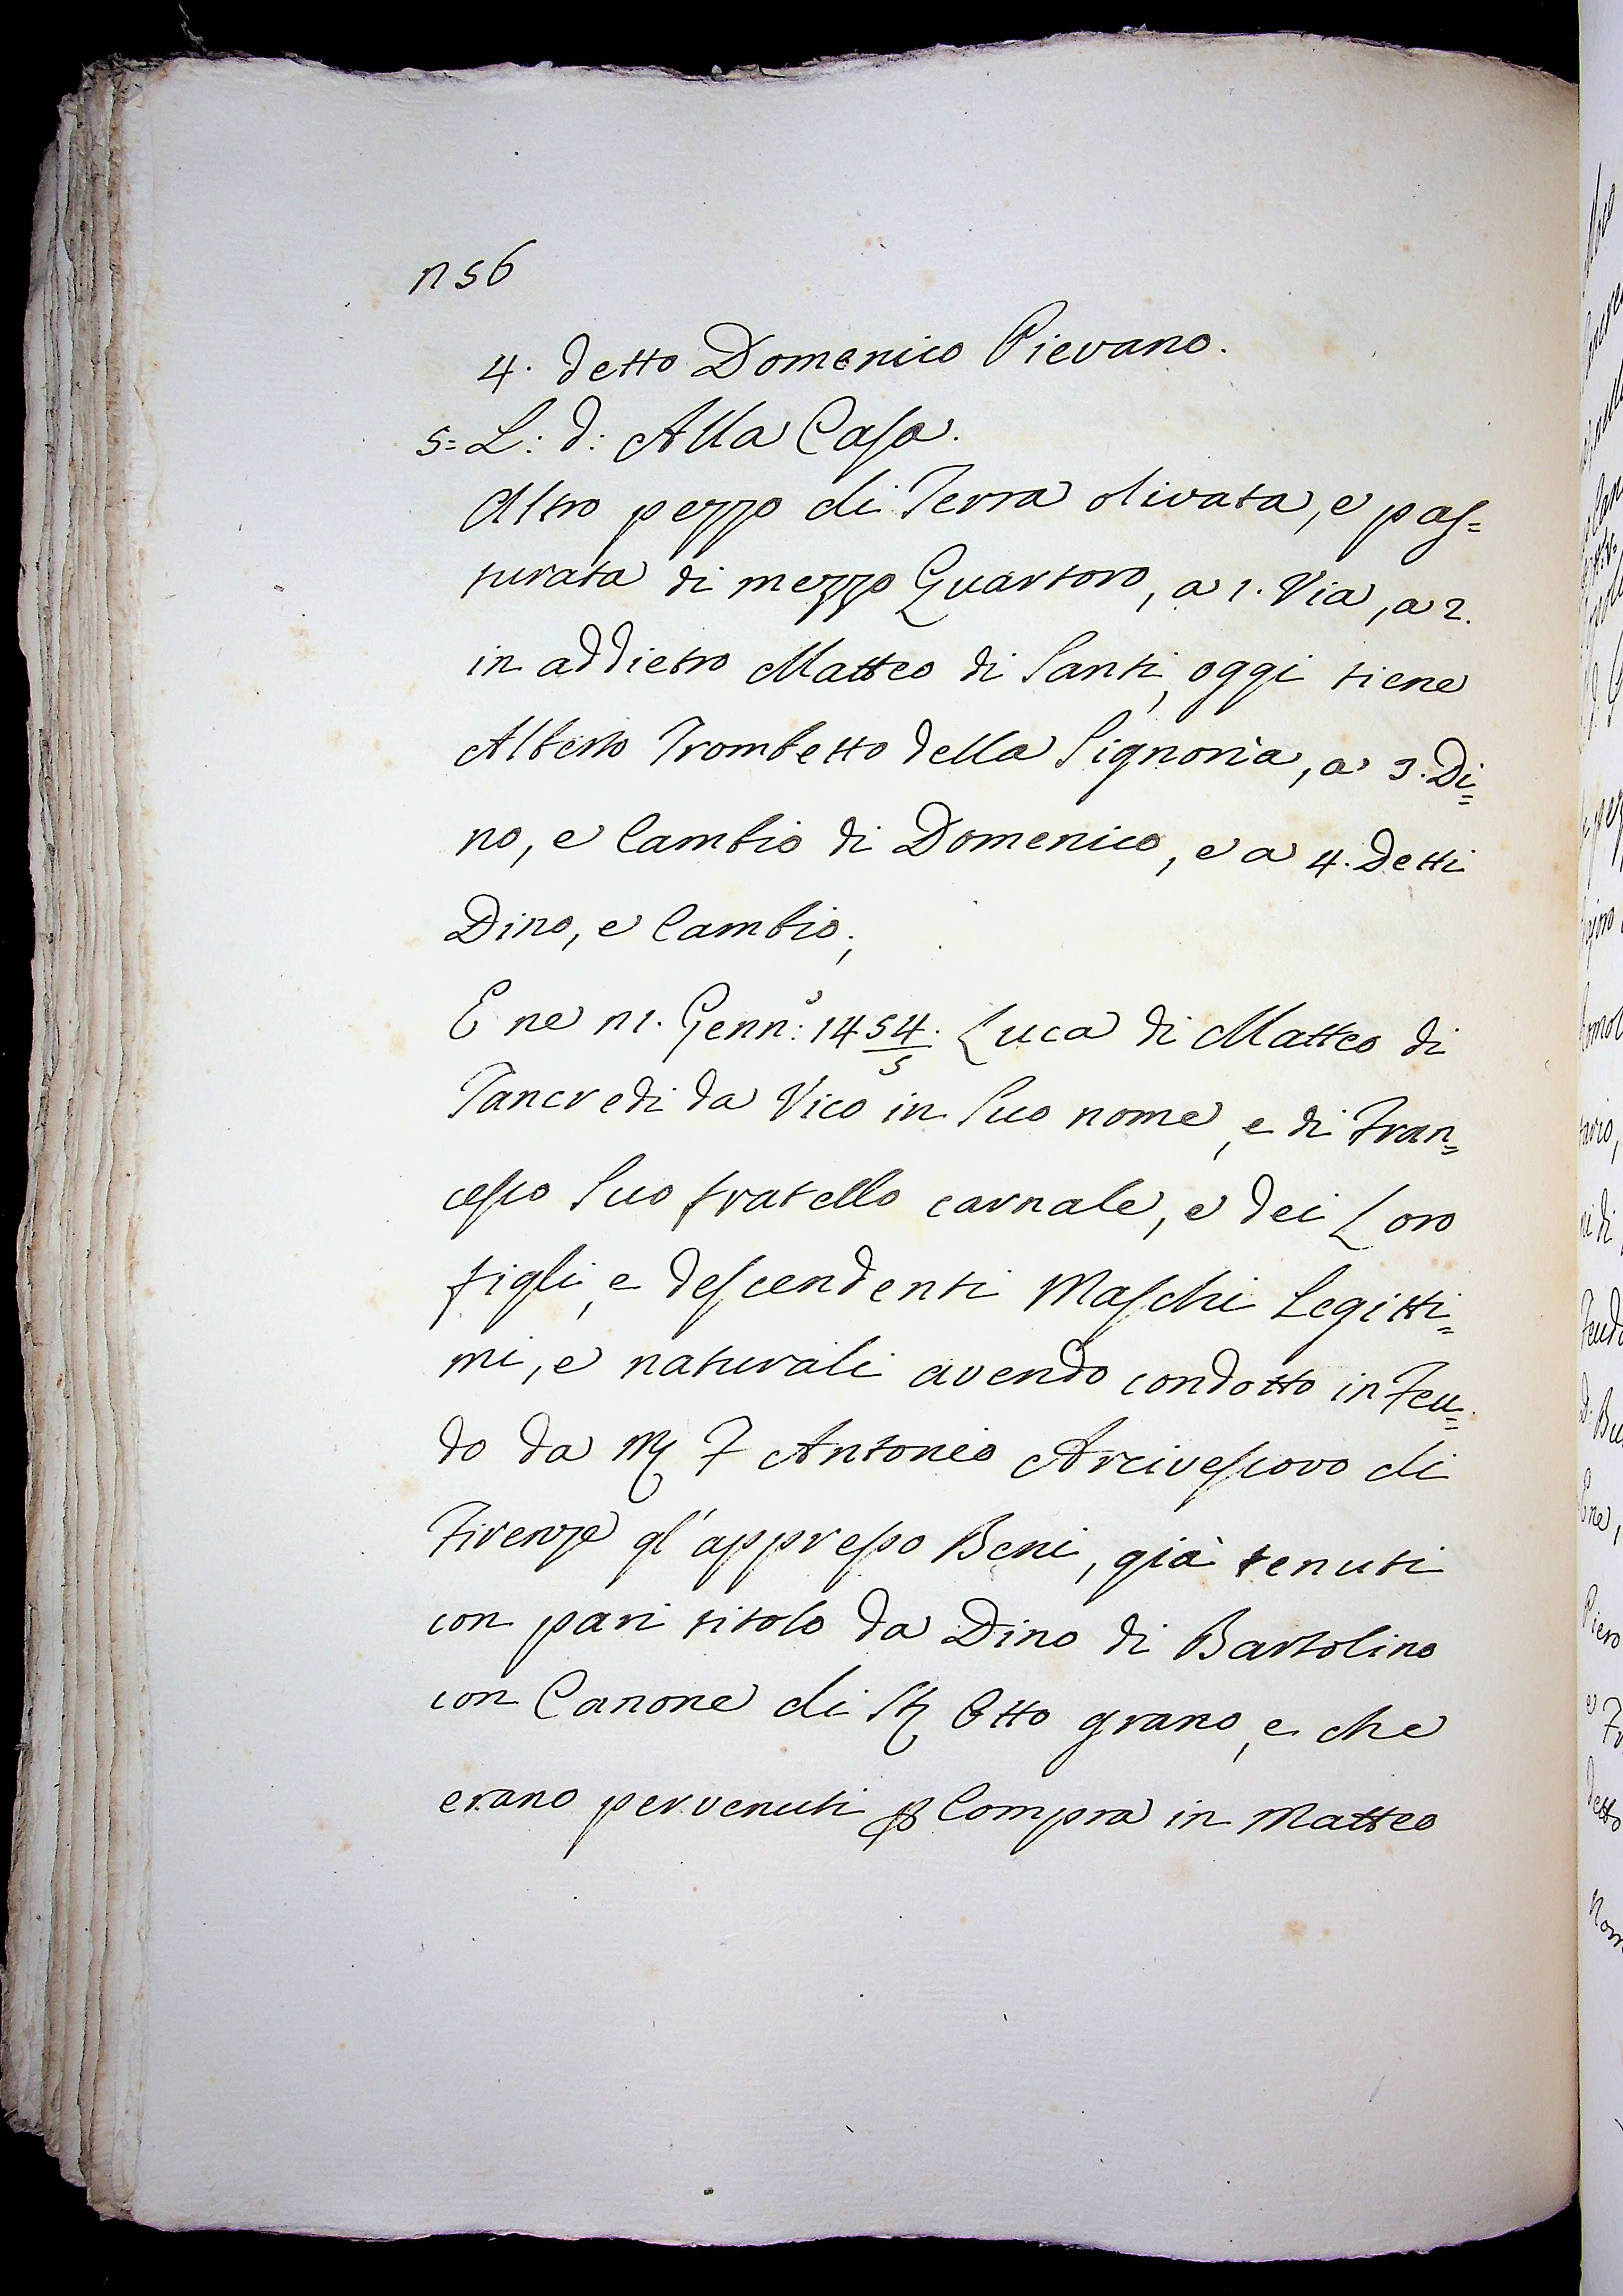 n56
4. detto Domenico Pievano.
5= L: d: Alla Casa.
Altro pezzo di Terra olivata, e pas=
turata di mezzo Quartoro, a 1. Via, a 2.
in addietro Matteo di Santi, oggi tiene
Alberto Trombetto della Signoria, a 3. Di=
no, e Cambio di Domenico, e a 4. Detti
Dino, e Cambio;
E ne n1. Genn:º 1454/5. Luca di Matteo di
Tancredi da Vico in Suo nome, e di Fran=
cesco Suo fratello carnale, e dei Loro
figli, e descendenti Maschi Legitti=
mi, e naturali avendo condotto in Feu=
do da M F Antonio Arcivescovo di
Firenze gl'appresso Beni, già tenuti
con pari titolo da Dino di Bartolino
con Canone di St Otto grano, e che
erano pervenuti p Compra in Matteo